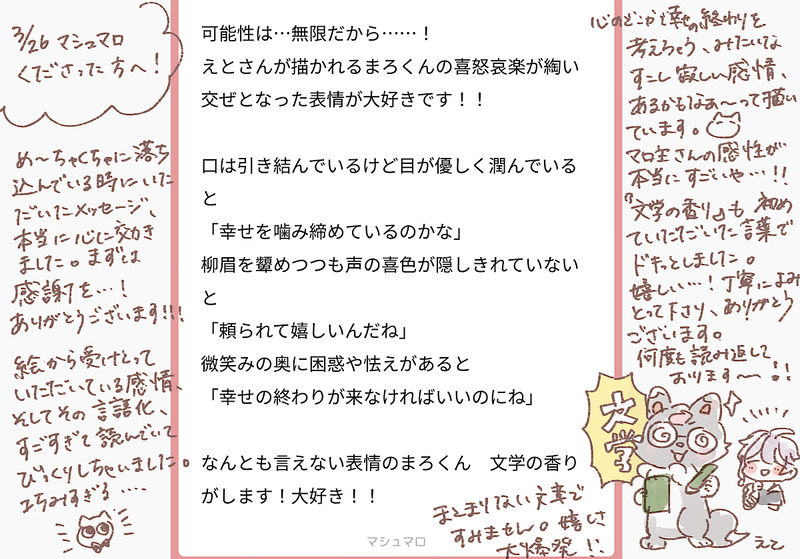 3/26 マシュマロ
くださった方へ!
め〜ちゃくちゃに落ち
込んでいる時にいた
だいたメッセージ、
本当に心に効き
ました。まずは
感謝を…!
ありがとうございます!!!
絵から受けとって
いただいている感情、
そしてその言語化、
すごすぎて読んでいて
びっくりしちゃいました。
巧みすぎる…
可能性は…無限だから……!
えとさんが描かれるまろくんの喜怒哀楽が綯い
交ぜとなった表情が大好きです!!
口は引き結んでいるけど目が優しく潤んでいる
と
「幸せを噛み締めているのかな」
柳眉を顰めつつも声の喜色が隠しきれていない
と
「頼られて嬉しいんだね」
微笑みの奥に困惑や怯えがあると
「幸せの終わりが来なければいいのにね」
なんとも言えない表情のまろくん 文学の香り
がします!大好き!!
マシュマロ
心のどこかで幸せの終わりを
考えちゃう、みたいな
すこし寂しい感情、
あるかもなぁ〜って描い
ています。
マロ主さんの感性が
本当にすごいや…!!
『文学の香り』も初め
ていただいた言葉で
ドキっとしました。
嬉しい…!丁寧によみ
とって下さり、ありがとう
ございます。
何度も読み返して
おります〜!!
文学
まとまりない文章で
すみません。嬉しさ
大爆発!!
えと